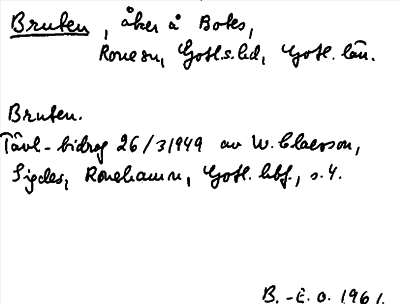 Bruten, åker å Botes,
Rone sn, Gotl.s. hd, Gotl. län.
Bruten.
Tävl-bidrag 26/3 1949 av W. Claesson,
Sigdes, Ronehamn, Gotl. hbf., s. 4.
B.-E. O. 1961.